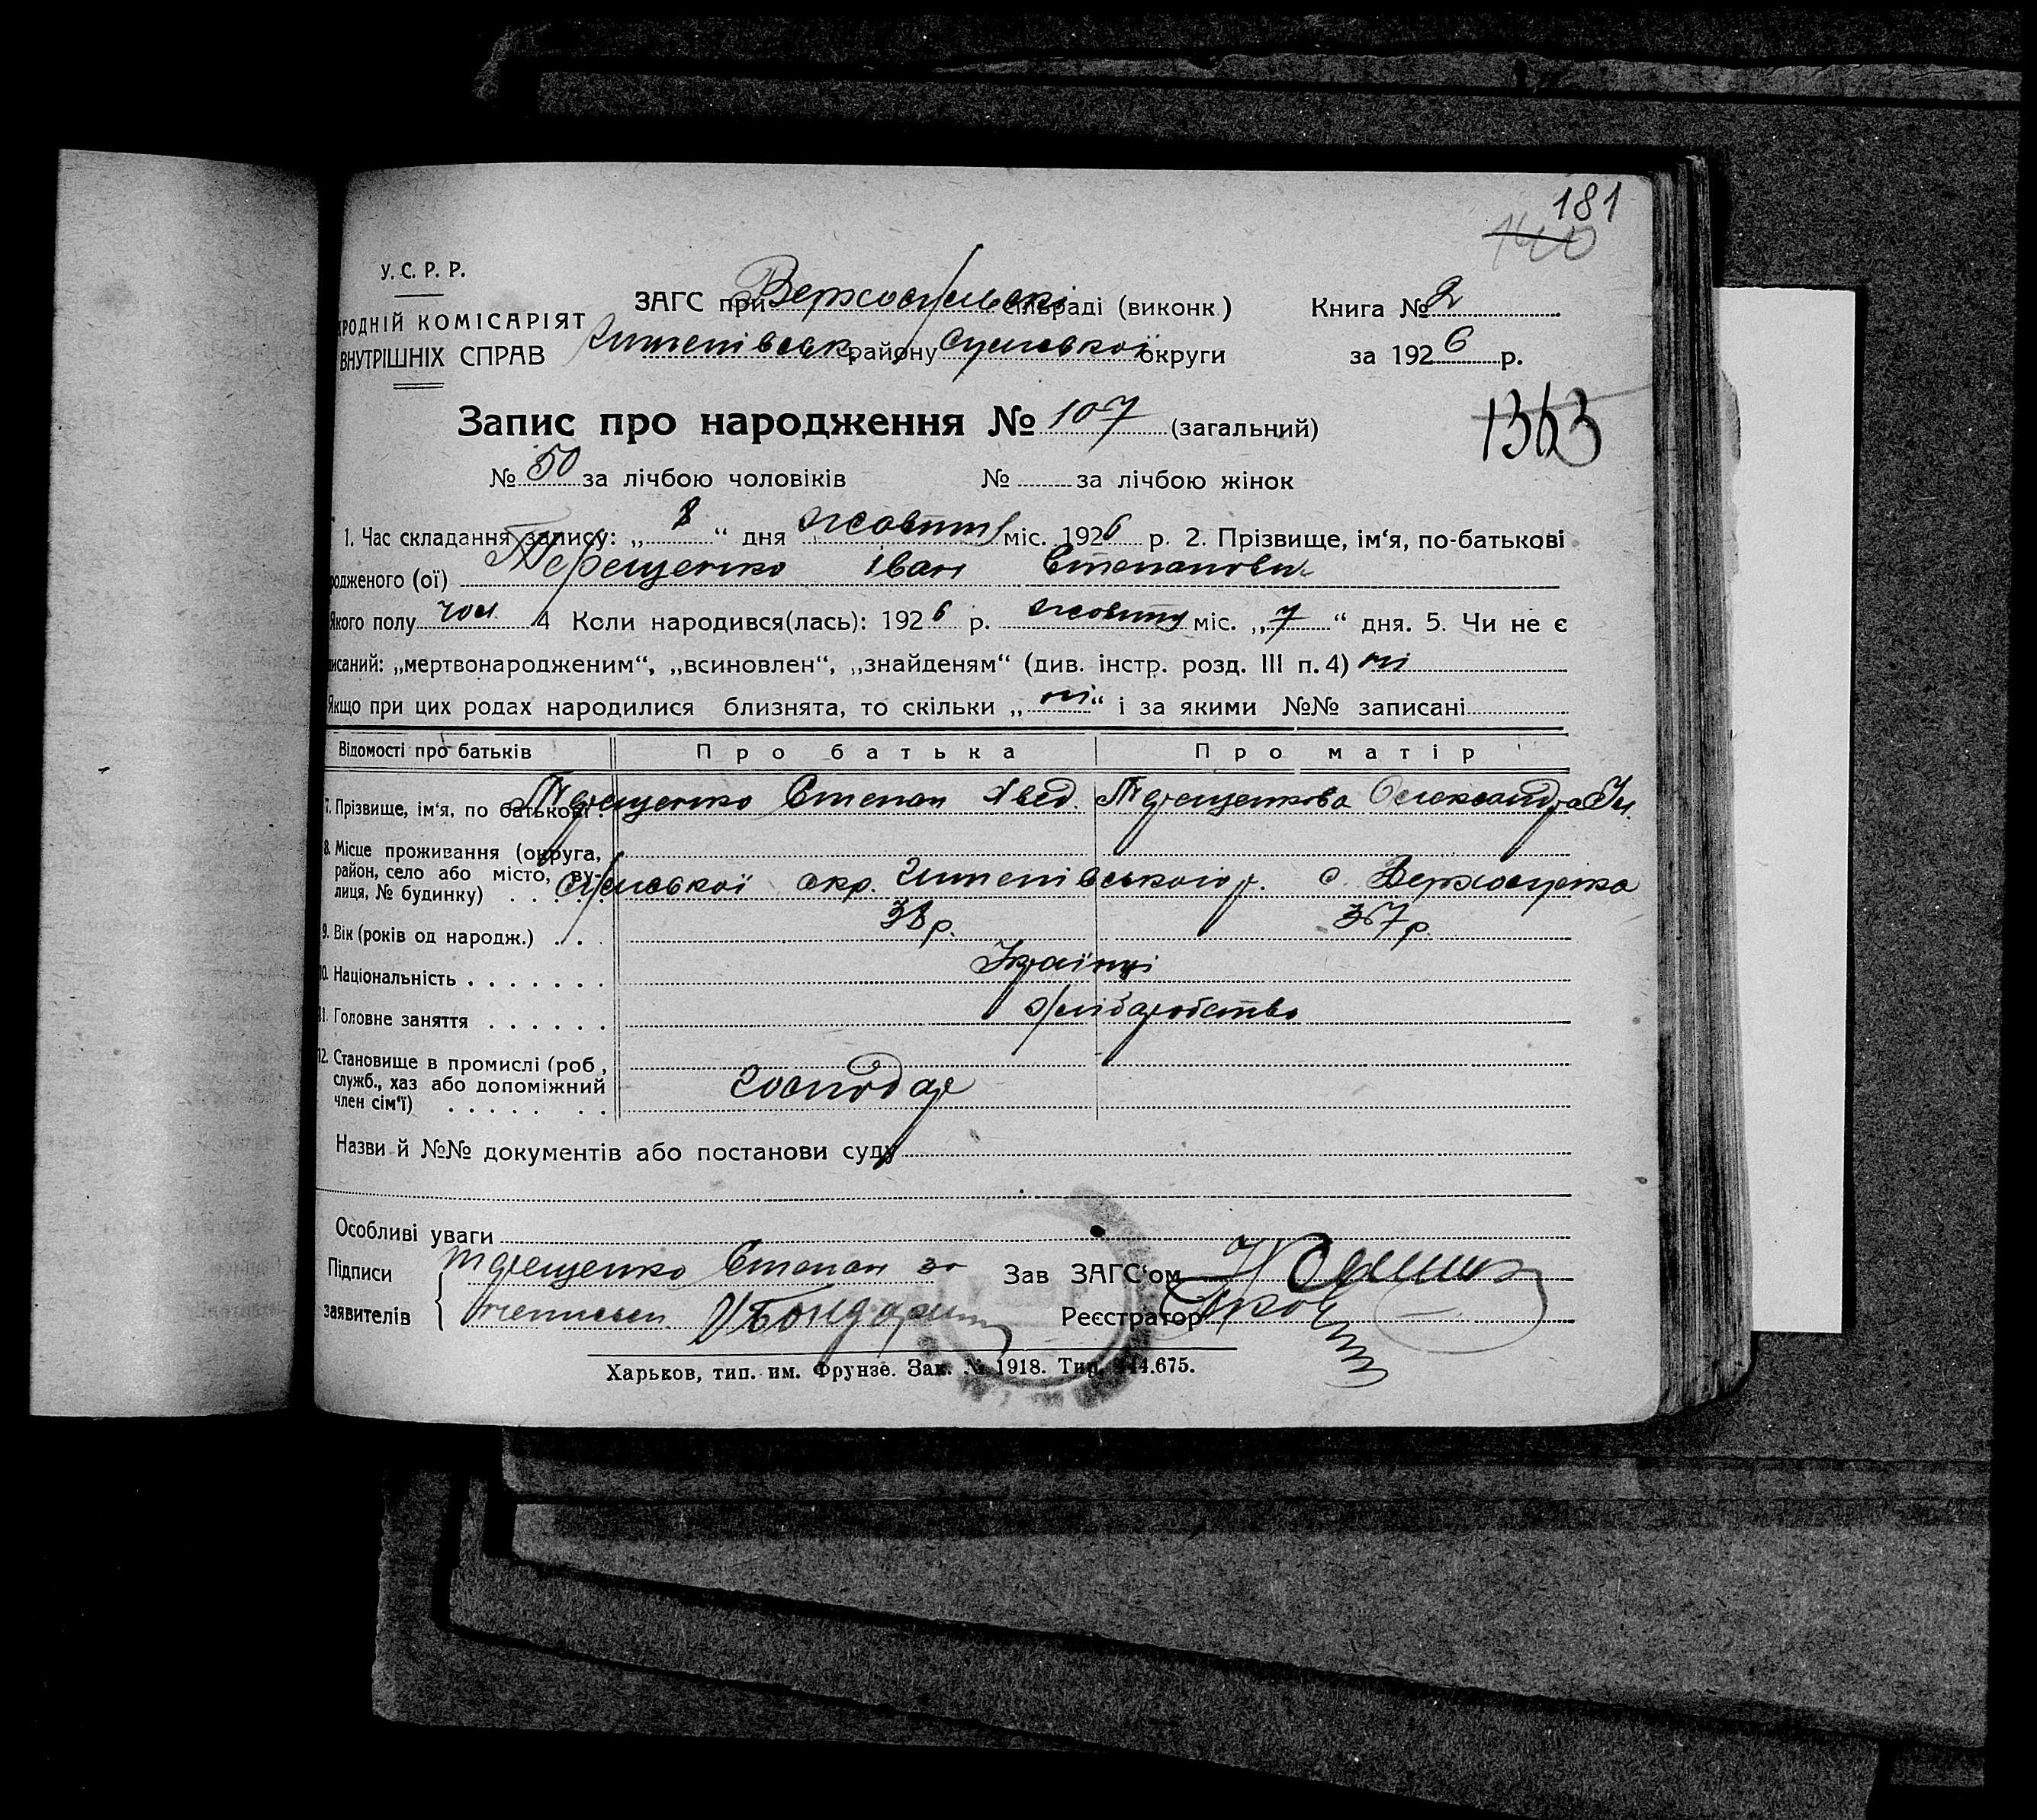 181
140
У. С. Р. Р.
РОДНІЙ КОМІСАРІЯТ
ВНУТРІШНІХ СПРАВ
ЗАГС при Верхосульські сільраді (виконк)
Книга № 2
Штепівськ району Сумської округи
за 1926 р.
Запис про народження № 107 (загальний)
1363
№ 50 за лічбою чоловіків № за лічбою жінок
1. Час складання запису: „ 8 “ дня жовтня міс. 1926 р. 2. Прізвище, ім‘я, по-батькові
родженого (ої) Терещенко Іван Степанович
Якого полу чол 4 Коли народився(лась): 1926 р. жовтня міс. „ 7 “ дня. 5. Чи не є
писаний: „мертвонародженим“, „всиновлен“, „знайденям“ (див. інстр. розд. III п. 4) ні
Якщо при цих родах народилися близнята, то скільки „ ні “ і за якими №№ записані
Відомості про батьків Про батька Про матір
7. Прізвище, ім‘я, по батькові . Терещенко Степан Хвед. Терещенкова Олександра
8. Місце проживання (округа,
район, село або місто, ву-
лиця, № будинку) Сумської окр. Штепівського р. с Верхосулка
9. Вік (років од народж.) 38 р. 37 р.
10. Національність Українці
11. Головне заняття Хліборобство
12. Становище в промислі (роб,
служб., хаз або допоміжний
член сім‘ї) господар
Назви й №№ документів або постанови суду
Особливі уваги
Підписи
заявителів
Терещенко Степан за
неписьм. Бондарин
Зав ЗАГС‘ом
Реєстратор
Харьков, тип. им. Фрунзе. Зак. № 1918. Тир. 444.675.